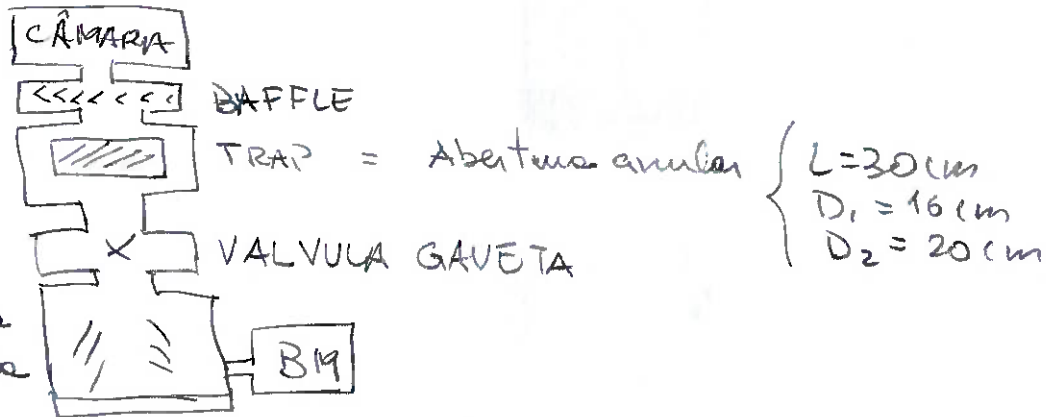 CÂMARA
BAFFLE
TRAP = Abertura anular { L=30cm
D₁ = 16cm
D₂ = 20cm
VALVULA GAVETA
BM